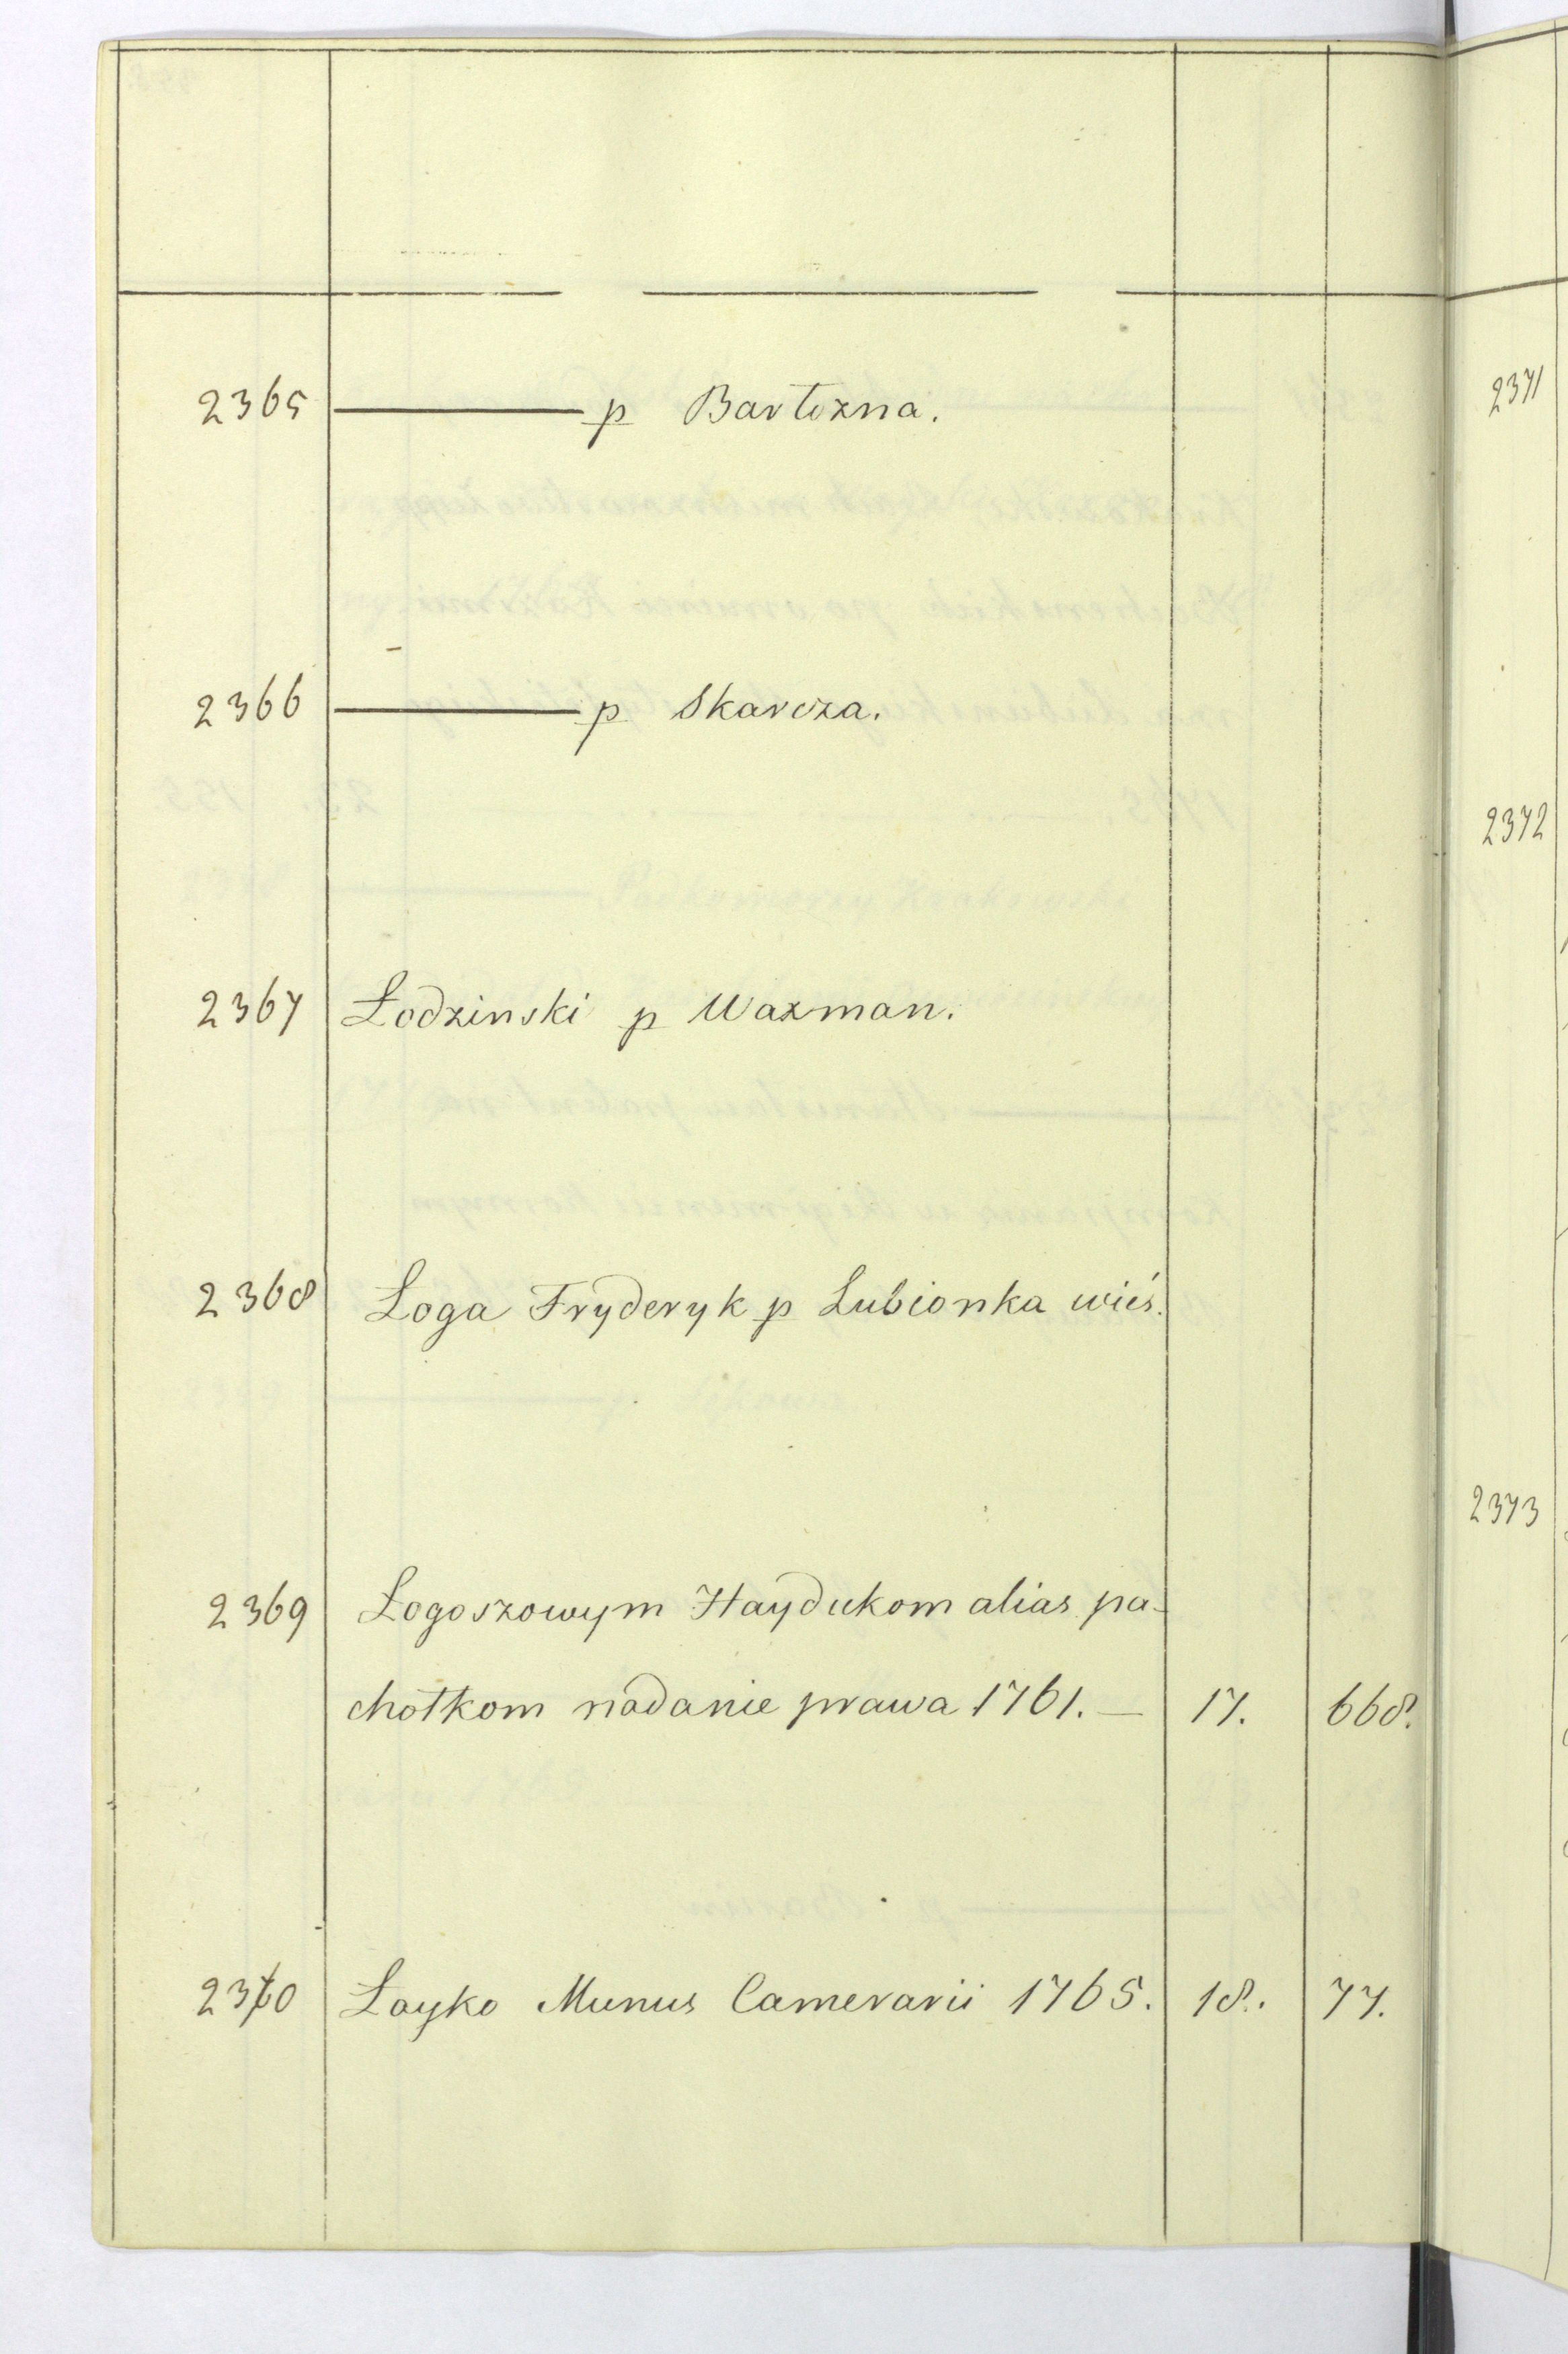 2365 ——— p Bartozna.
2366 ——— p Skarcza.
2367 Łodzinski p Waxman.
2368 Loga Fryderyk p Lubionka wieś.
2369 Logoszowym Haydukom alias pa-
chołkom nadanie prawa 1761. — 17. 668.
2370 Layko Munus Camerarii 1765. 18. 77.
2371
2372
2373